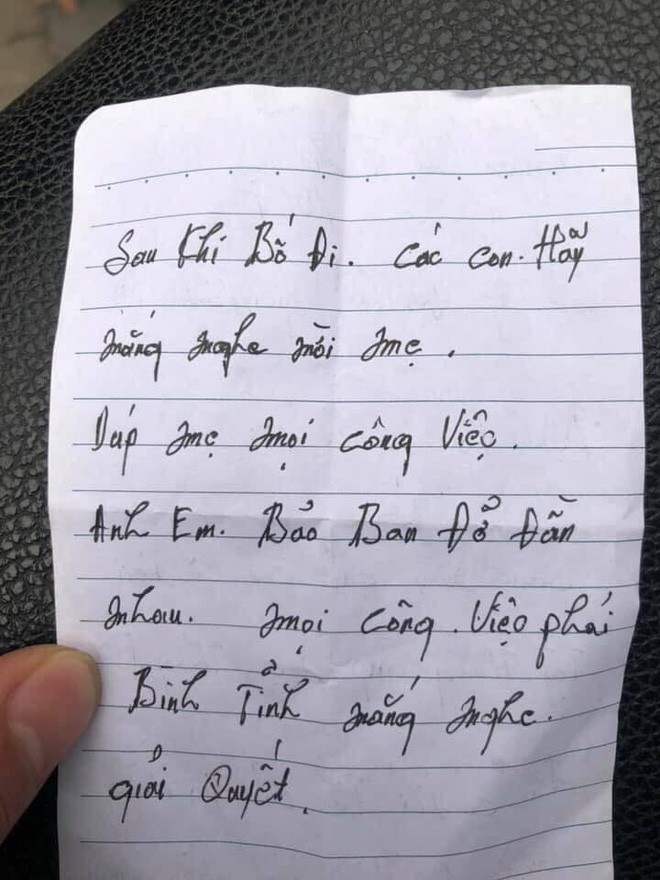 Sau Khi Bố Đi. Các con. Hãy
nắng nghe nời mẹ.
Dúp mẹ mọi công Việc.
Anh Em. Bảo Ban Đở Đần
nhau. mọi công. Việc phải
Bình Tỉnh nắng nghe.
giải Quyết.